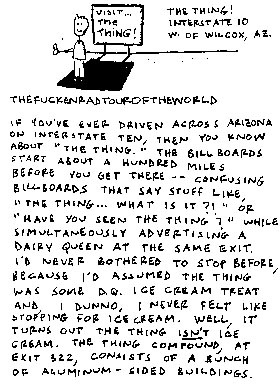 VISIT...
THE
THING!
THE THING!
INTERSTATE 10
W. OF WILCOX, AZ.
THEFUCKENRADTOUROFTHEWORLD
IF YOU'VE EVER DRIVEN ACROSS ARIZONA
ON INTERSTATE TEN, THEN YOU KNOW
ABOUT "THE THING." THE BILLBOARDS
START ABOUT A HUNDRED MILES
BEFORE YOU GET THERE -- CONFUSING
BILLBOARDS THAT SAY STUFF LIKE,
"THE THING... WHAT IS IT?!" OR
"HAVE YOU SEEN THE THING?" WHILE
SIMULTANEOUSLY ADVERTISING A
DAIRY QUEEN AT THE SAME EXIT.
I'D NEVER BOTHERED TO STOP BEFORE,
BECAUSE I'D ASSUMED THE THING
WAS SOME D.Q. ICE CREAM TREAT
AND, I DUNNO, I NEVER FELT LIKE
STOPPING FOR ICE CREAM. WELL, IT
TURNS OUT THE THING ISN'T ICE
CREAM. THE THING COMPOUND, AT
EXIT 322, CONSISTS OF A BUNCH
OF ALUMINUM-SIDED BUILDINGS.